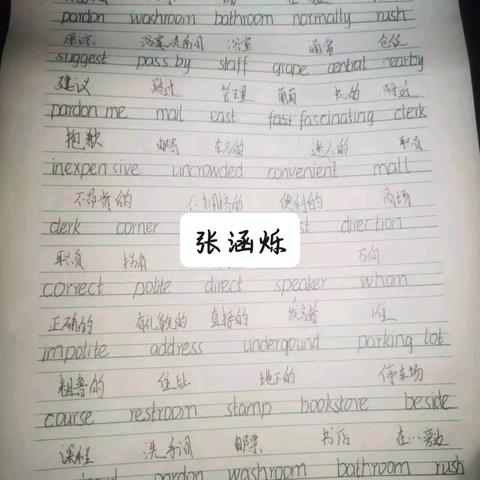 pardon washroom bathroom normally rush
原谅 洗手间 浴室 通常 仓促
suggest pass by staff grape central nearby
建议 路过 管理 葡萄 附近
pardon me mail east fast fascinating clerk
抱歉 邮寄 东方的 迷人的 职员
inexpensive uncrowded convenient mall
不昂贵的 不拥挤的 便利的 商场
clerk corner direction
职员 拐角 方向
张涵烁
correct polite direct speaker whom
正确的 有礼貌的 直接的 发言者 谁
impolite address undergound parking lot
粗鲁的 住址 地下的 停车场
course restroom stamp bookstore beside
课程 洗手间 邮票 书店 在…旁边
pardon washroom bathroom rush